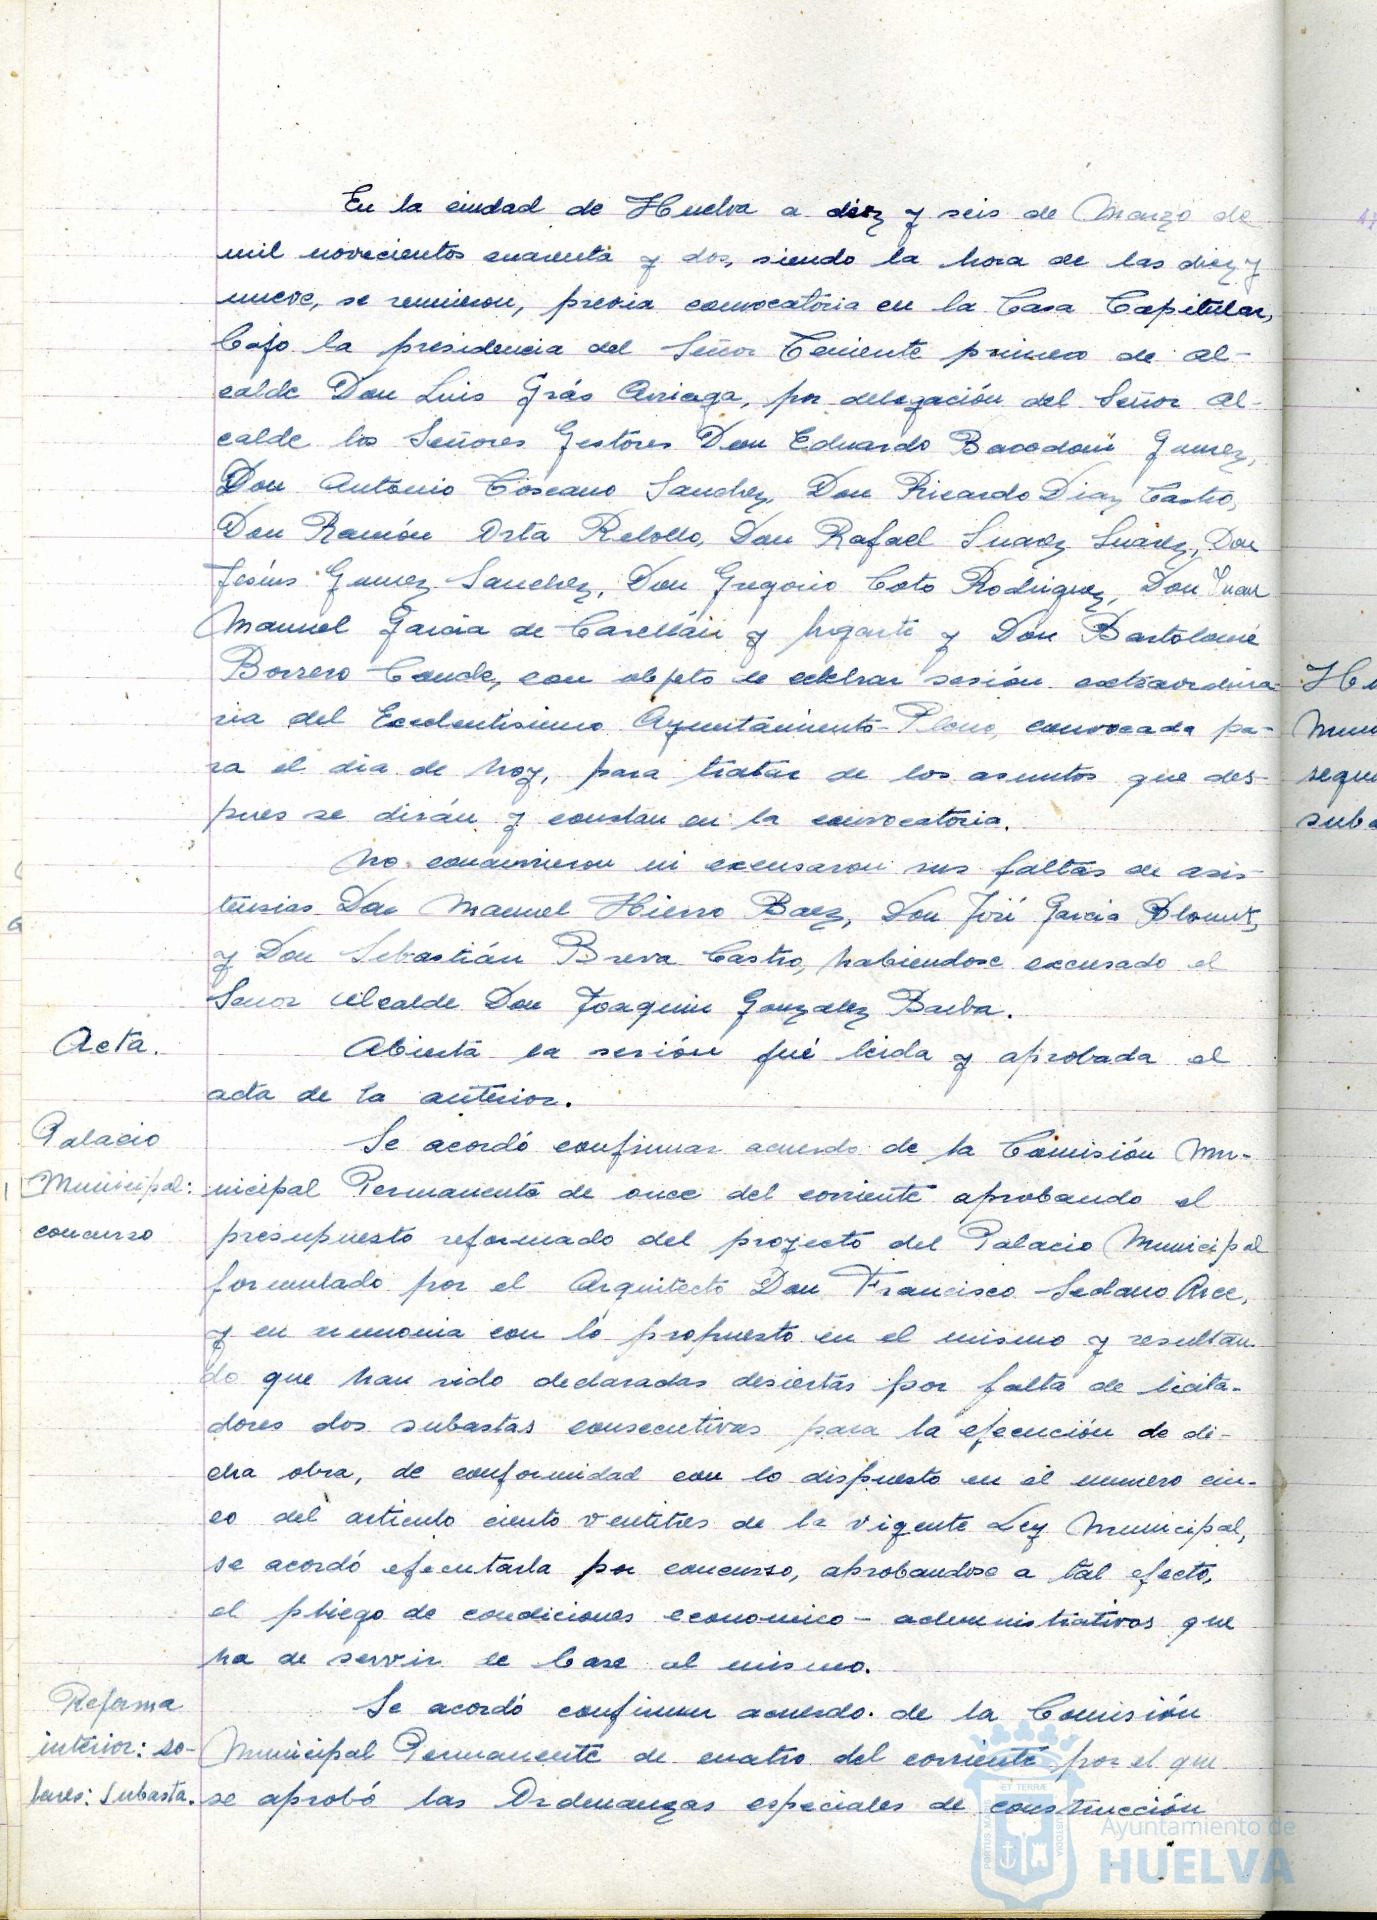 En la ciudad de Huelva a diez y seis de Marzo de
mil novecientos cuarenta y dos, siendo la hora de las diez y
nueve, se reunieron, previa convocatoria en la Casa Capitular,
bajo la presidencia del Señor Teniente primero de Al-
calde Don Luis Grás Arriaga, por delegación del Señor Al-
calde los Señores Gestores Don Eduardo Gumez,
Don Antonio Toscano Sanchez, Don Ricardo Diaz Castro,
Don Ramón Orta Rebollo, Don Rafael Suarez Suárez, Don
Jesús Gumez Sanchez, Don Gregorio Coto Rodriguez, Don Juan
Manuel Garcia de Casellán y y Don Bartolomé
Borrero Conde, con objeto de celebrar sesión extraordina-
ria del Excelentisimo Ayuntamiento-Pleno, convocada pa-
ra el dia de hoy, para tratar de los asuntos que des-
pues se dirán y constan en la convocatoria.
No concurrieron ni excusaron sus faltas de asis-
tensias Don Manuel Hierro Baez, Don José Garcia
y Don Sebastián Breva Castro, habiendose excusado el
Señor Alcalde Don Joaquin Gonzalez Barba.
Acta.
Abierta la sesión fué leida y aprobada el
acta de la anterior.
Palacio
Municipal:
concurso
Se acordó confirmar acuerdo de la Comisión Mu-
nicipal Permanente de once del corriente aprobando el
presupuesto reformado del proyecto del Palacio Municipal
formulado por el Arquitecto Don Francisco Sedano Arce,
y en armonia con lo propuesto en el mismo y resultan-
do que han sido declaradas desiertas por falta de licita-
dores dos subastas consecutivas para la ejecución de di-
cha obra, de conformidad con lo dispuesto en el numero cin-
co del articulo ciento ventitres de la vigente Ley Municipal,
se acordó ejecutarla por concurso, aprobandose a tal efecto,
el pliego de condiciones economico-administrativas que
ha de servir de base al mismo.
Reforma
interior: so-
lares: Subasta.
Se acordó confirmar acuerdo de la Comisión
Municipal Permanente de cuatro del corriente por el que
se aprobó las Ordenanzas especiales de construcción
Ayuntamiento de
HUELVA